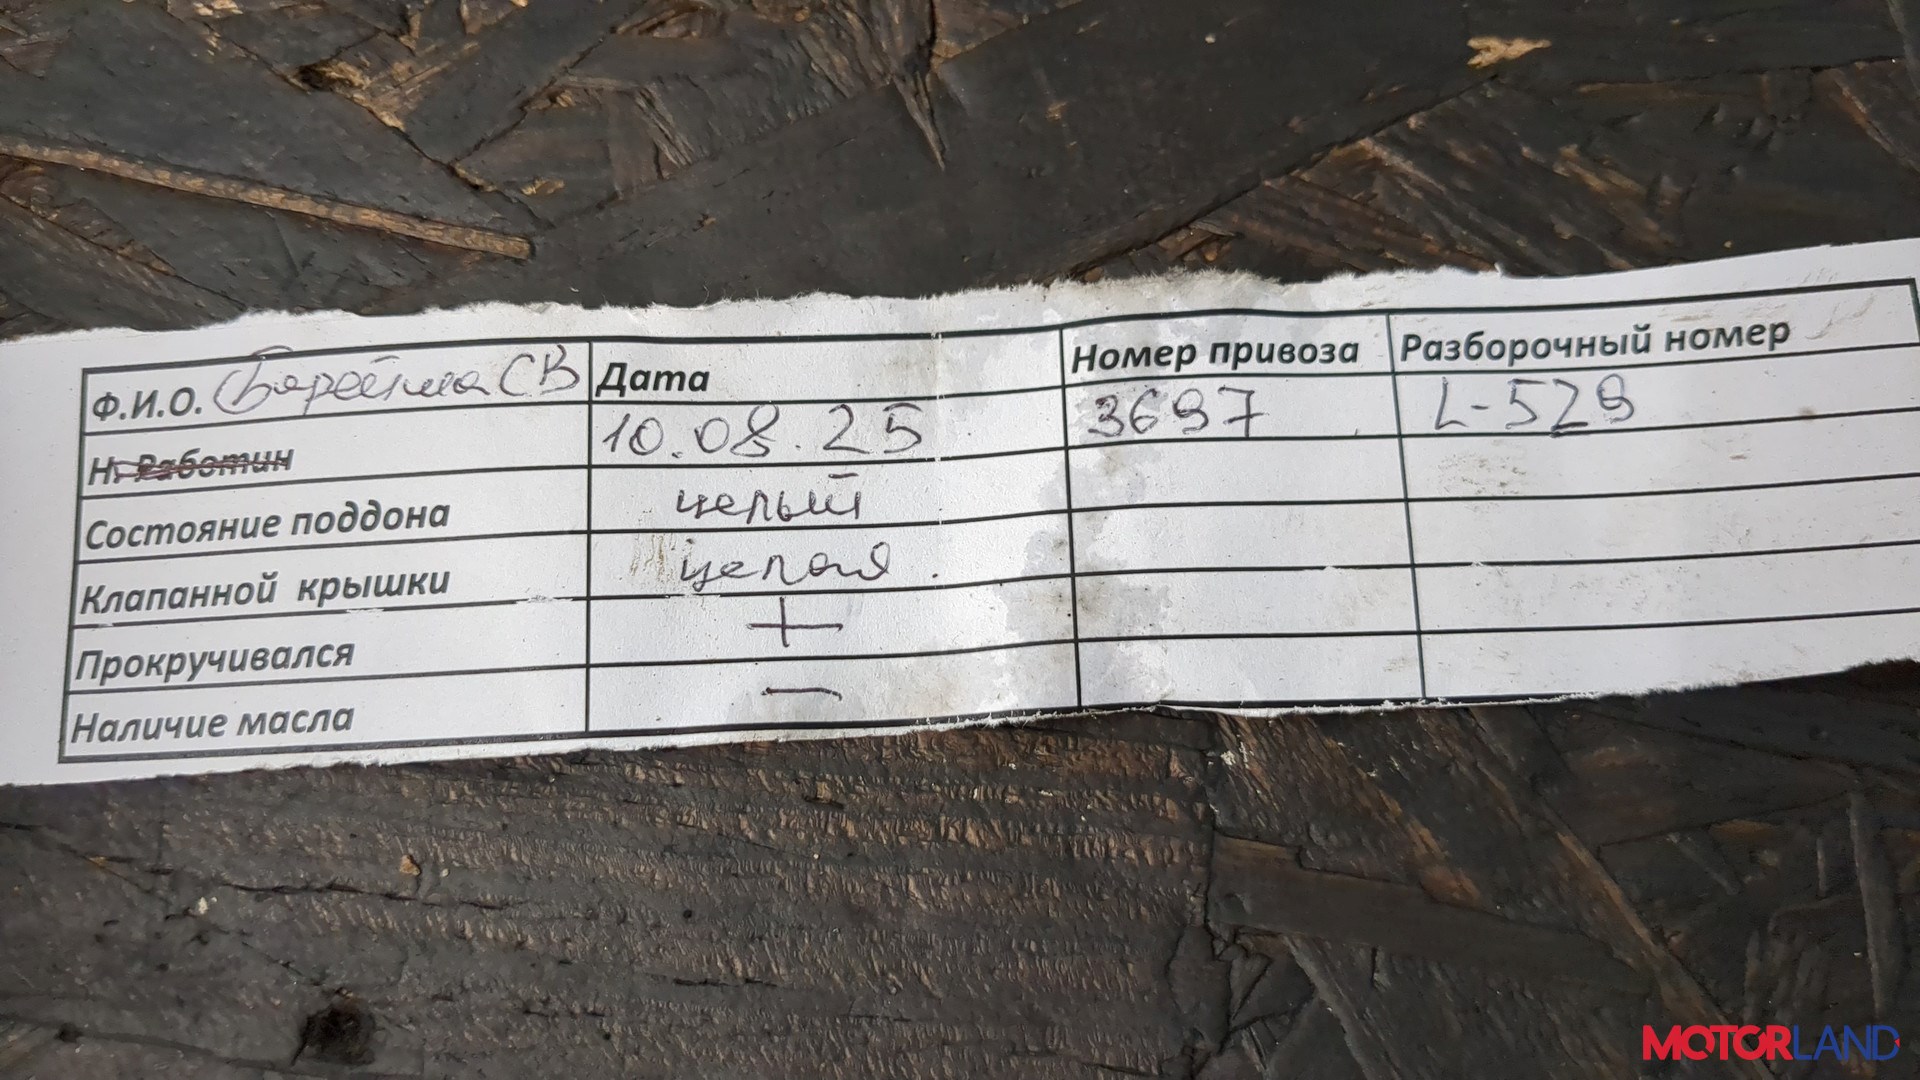 Ф.И.О. СВ Дата Номер привоза Разборочный номер
Н. Работин 10.08.25 3697 L-529
Состояние поддона целый
Клапанной крышки целая
Прокручивался +
Наличие масла –
MOTORLAND